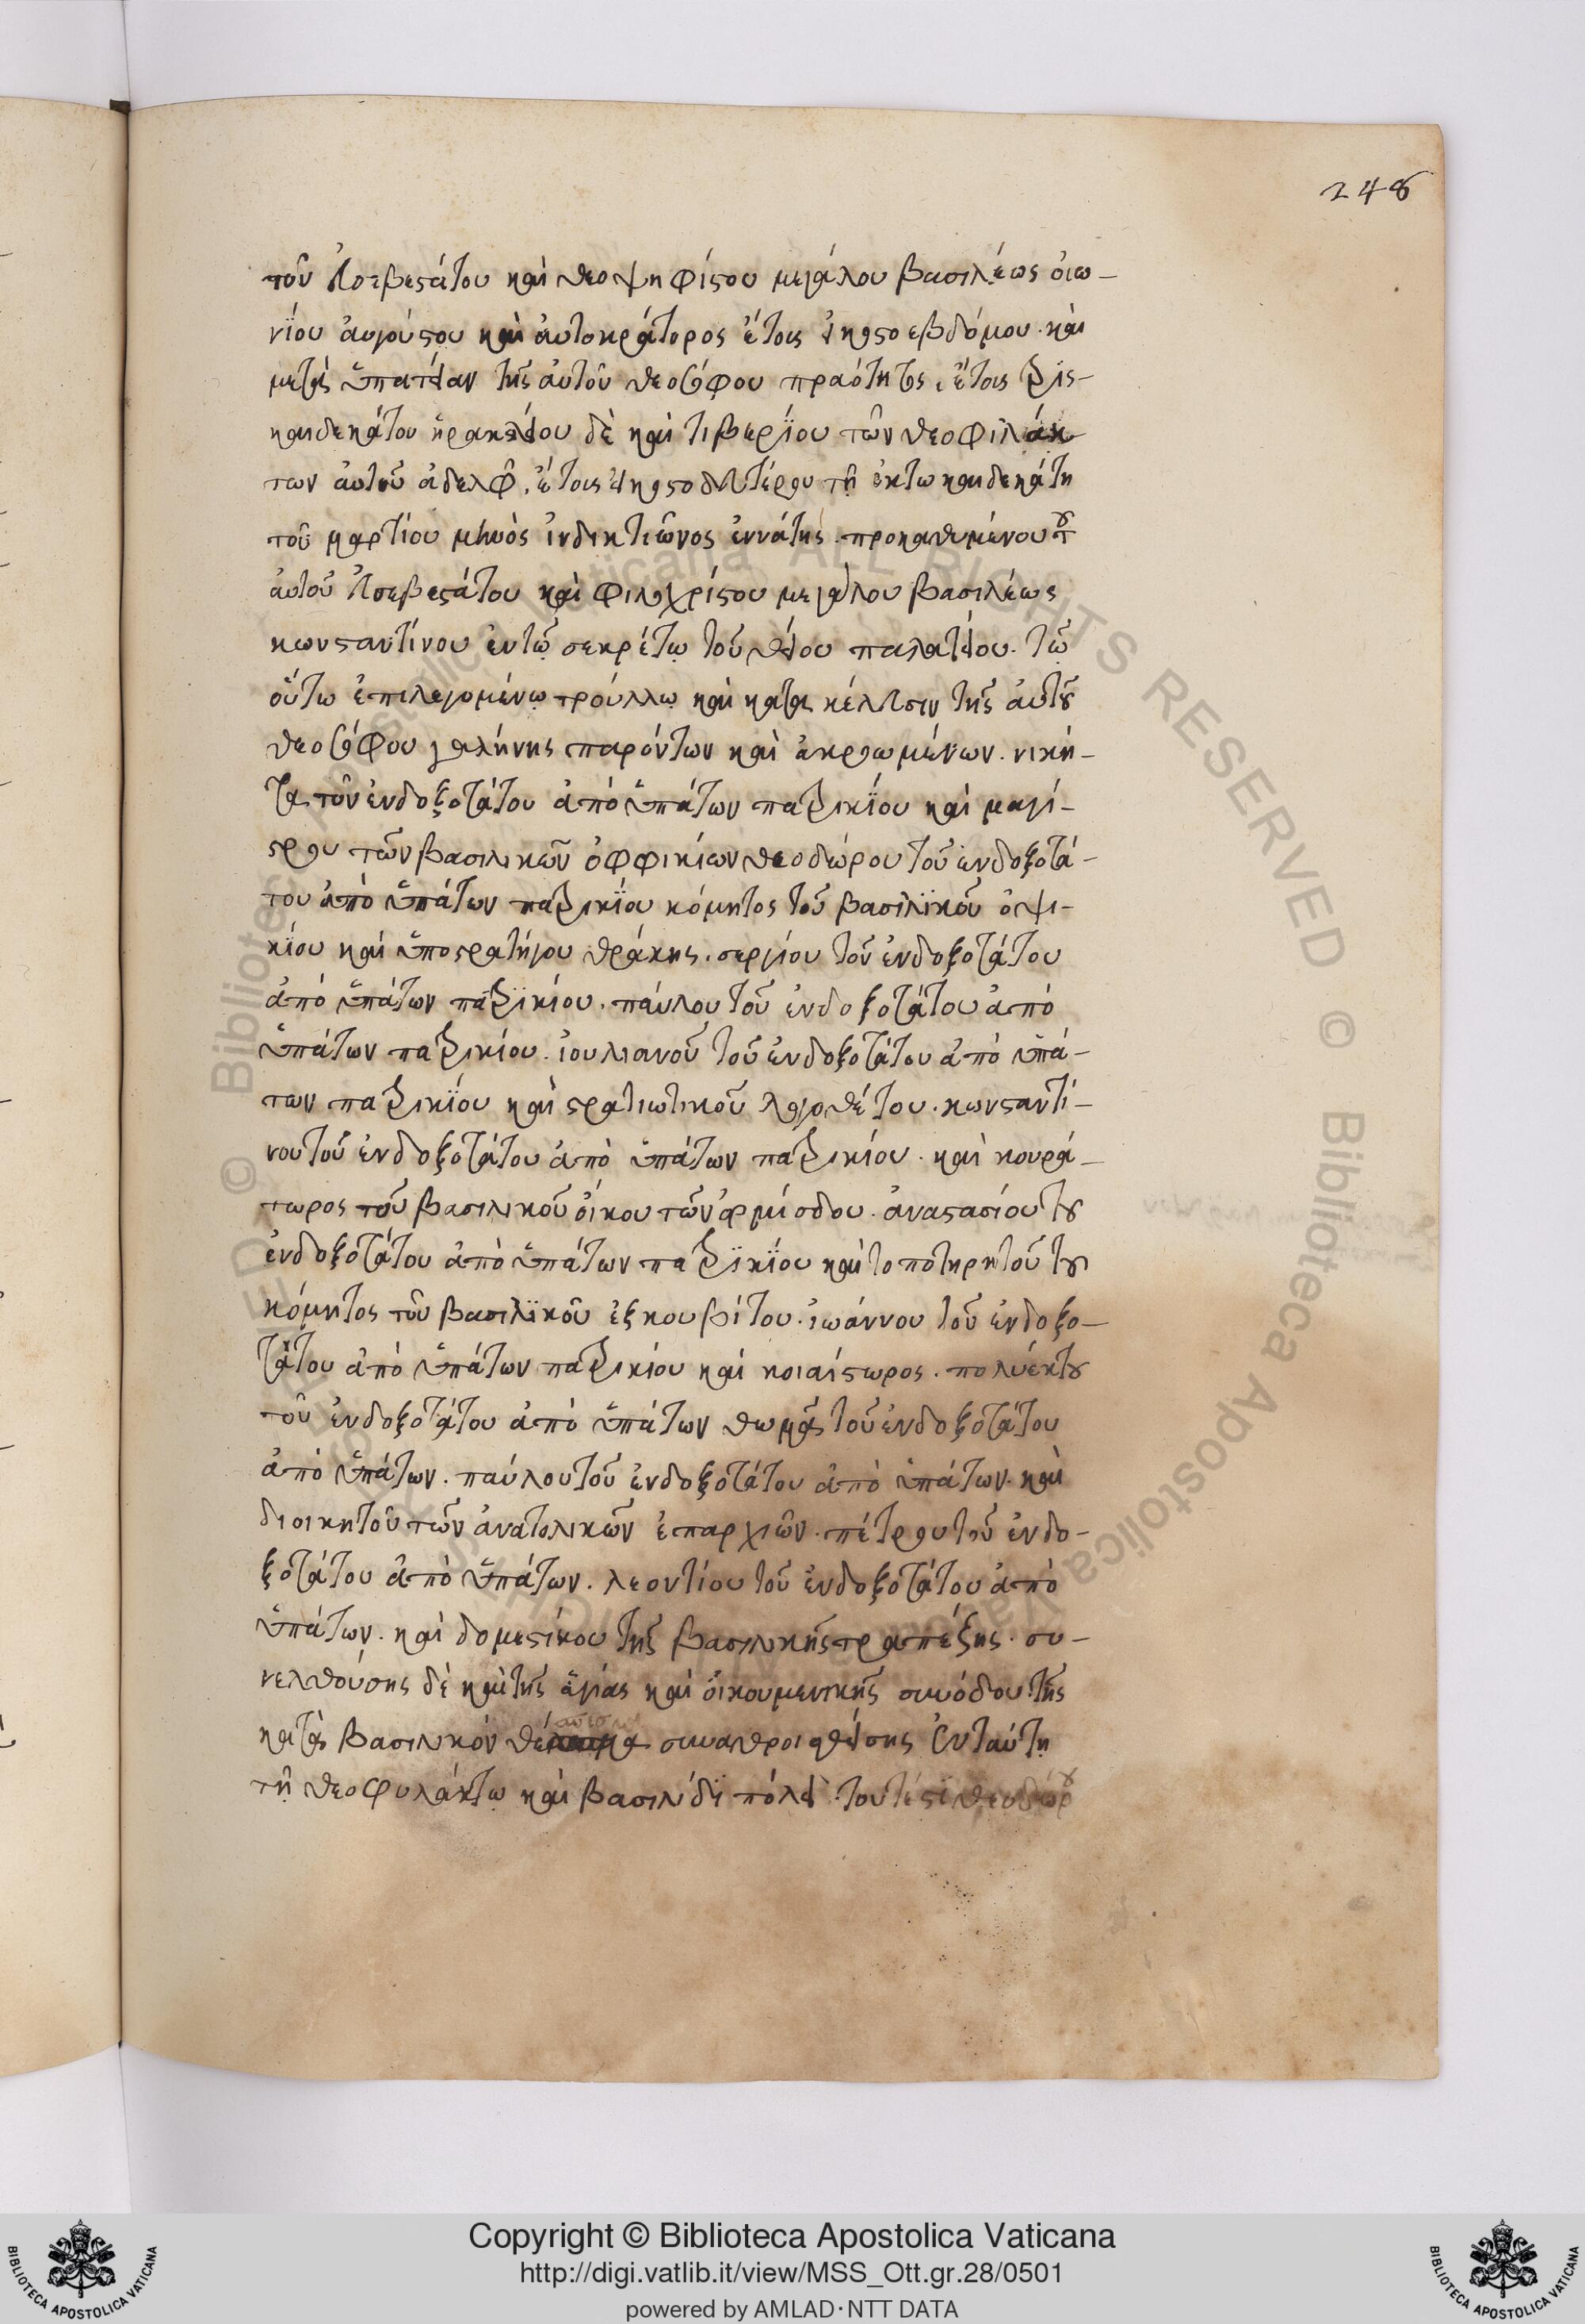 248
τοῦ εὐσεβεστάτου καὶ θεοψηφίστου μεγάλου βασιλέως οἰω-
νΐου ἀυγούστου καὶ ἀυτοκράτορος ἔτους εἰκοστο εβδόμου. καὶ
μετὰ ὑπατείαν τῆς ἀυτοῦ θεοσόφου πραότητος, ἔτους τρισ-
καιδεκάτου ἡρακλείου δὲ καὶ τιβερΐου τῶν θεοφιλάκ
των ἀυτοῦ ἀδελφῶν, ἔτους εἰκοστο δευτέρου τῇ ἑκτωκαιδεκάτη
τοῦ μαρτίου μηνὸς ἰνδικτιῶνος ἐννάτης. προκαθημένου τοῦ
ἀυτοῦ εὐσεβεστάτου καὶ φιλοχρίστου μεγάλου βασιλέως
κωνσταντίνου ἐν τῶ σεκρέτω τοῦ θείου παλατίου. τῶ
οὕτω ἐπιλεγομένω τρούλλω καὶ κατὰ κέλευσιν τῆς ἀυτοῦ
θεοσόφου γαλήνης παρόντων καὶ ἀκροωμένων. νική-
τα τοῦ ἐνδοξοτάτου ἀπὸ ὑπάτων πατρικΐου καὶ μαγί-
στρου τῶν βασιλικῶν ὀφφικίων θεοδώρου τοῦ ἐνδοξοτά-
του ἀπὸ ὑπάτων πατρικΐου κόμητος τοῦ βασιλϊκοῦ ὀψι-
κΐου καὶ ὑποστρατήγου θράκης. σεργίου τοῦ ἐνδοξοτάτου
ἀπὸ ὑπάτων πατρϊκίου. πάυλου τοῦ ἐνδοξοτάτου ἀπὸ
ὑπάτων πατρικίου. ἰουλιανοῦ τοῦ ἐνδοξοτάτου ἀπὸ ὑπά-
των πατρικΐου καὶ στρατιωτικοῦ λογοθέτου. κωνσταντί-
νου τοῦ ἐνδοξοτάτου ἀπὸ ὑπάτων πατρικίου. καὶ κουρά-
τωρος τοῦ βασιλικοῦ οἴκου τῶν ὁρμίσδου. ἀναστασίου τοῦ
ἐνδοξοτάτου ἀπὸ ὑπάτων πατρϊκΐου καὶ τοποτηρητοῦ τοῦ
κόμητος τοῦ βασιλϊκοῦ ἐξκουβίτου. ἰωάννου τοῦ ἐνδοξο-
τάτου ἀπὸ ὑπάτων πατρικίου καὶ κοιαίστωρος. πολυέκτου
τοῦ ἐνδοξοτάτου ἀπὸ ὑπάτων θωμᾶ τοῦ ἐνδοξοτάτου
ἀπὸ ὑπάτων. παύλου τοῦ ἐνδοξοτάτου ἀπὸ ὑπάτων. καὶ
διοικητοῦ τῶν ἀνατολικῶν ἐπαρχιῶν. πέτρου τοῦ ἐνδο-
ξοτάτου ἀπὸ ὑπάτων. λεοντίου τοῦ ἐνδοξοτάτου ἀπὸ
ὑπάτων. καὶ δομεστίκου τῆς βασιλικῆς τραπέζης. συ-
νελθούσης δὲ καὶ τῆς ἁγίας καὶ οἰκουμενικῆς συνόδου. τῆς
κατὰ βασιλικὸν συναθροισθείσης ἐν ταύτη
τῆ θεοφυλάκτω καὶ βασιλίδϊ πόλει. τουτέστϊ θεοδώρου
© Biblioteca Apostolica Vaticana ALL RIGHTS RESERVED
Copyright © Biblioteca Apostolica Vaticana
http://digi.vatlib.it/view/MSS_Ott.gr.28/0501
powered by AMLAD·NTT DATA
BIBLIOTECA APOSTOLICA VATICANA
BIBLIOTECA APOSTOLICA VATICANA